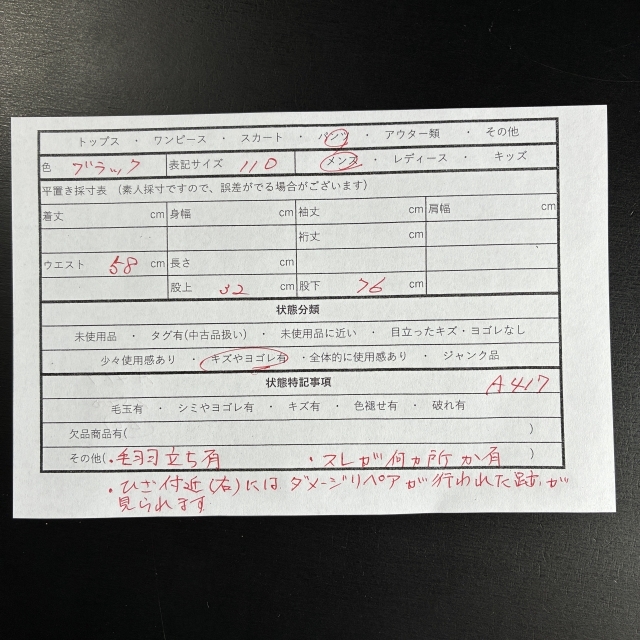 トップス ・ ワンピース ・ スカート ・ パンツ ・ アウター類 ・ その他
色 ブラック 表記サイズ 110 メンズ ・ レディース ・ キッズ
平置き採寸表 (素人採寸ですので、誤差がでる場合がございます)
着丈 cm 身幅 cm 袖丈 cm 肩幅 cm
裄丈 cm
ウエスト 58 cm 長さ cm
股上 32 cm 股下 76 cm
状態分類
未使用品 ・ タグ有(中古品扱い) ・ 未使用品に近い ・ 目立ったキズ・ヨゴレなし
少々使用感あり ・ キズやヨゴレ有 ・全体的に使用感あり ・ ジャンク品
状態特記事項 A417
毛玉有 ・ シミやヨゴレ有 ・ キズ有 ・ 色褪せ有 ・ 破れ有
欠品商品有( )
その他(・毛羽立ち有 ・スレが何ヵ所か有 )
・ひざ付近(右)にはダメージリペアが行われた跡が
見られます